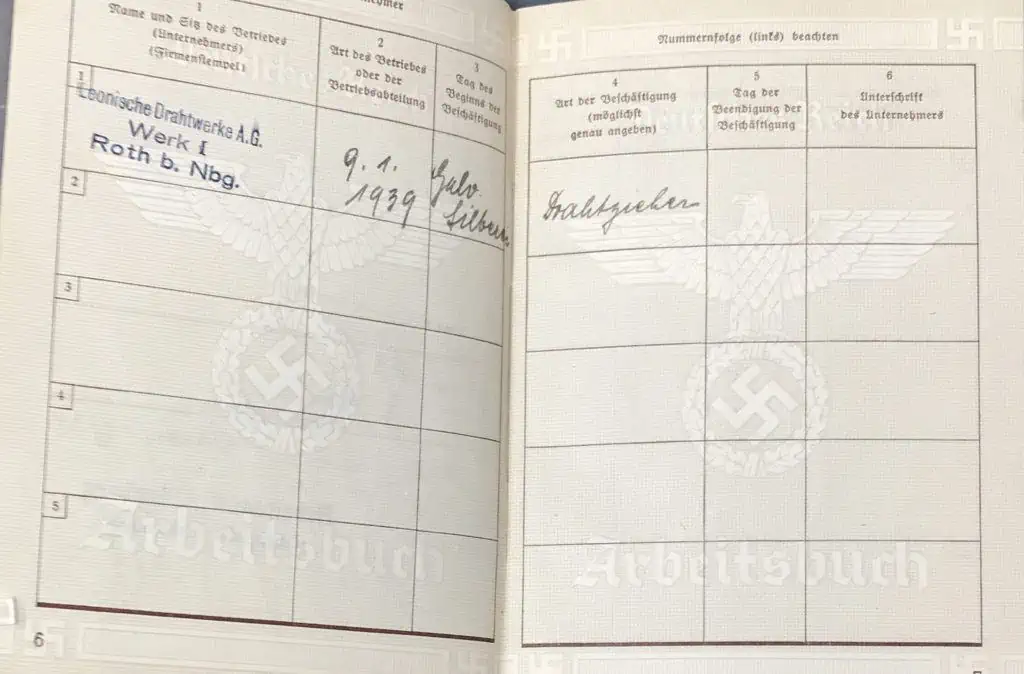 1
Name und Sitz des Betriebes
(Unternehmers)
(Firmenstempel)
2
Art des Betriebes
oder der
Betriebsabteilung
3
Tag des
Beginns der
Beschäftigung
1
Leonische Drahtwerke A.G.
Werk I
Roth b. Nbg.
9. 1.
1939
Galv.
2
3
4
5
Arbeitsbuch
6
Nummernfolge (links) beachten
4
Art der Beschäftigung
(möglichst
genau angeben)
5
Tag der
Beendigung der
Beschäftigung
6
Unterschrift
des Unternehmers
Deutsches Reich
Drahtzieher
Arbeitsbuch